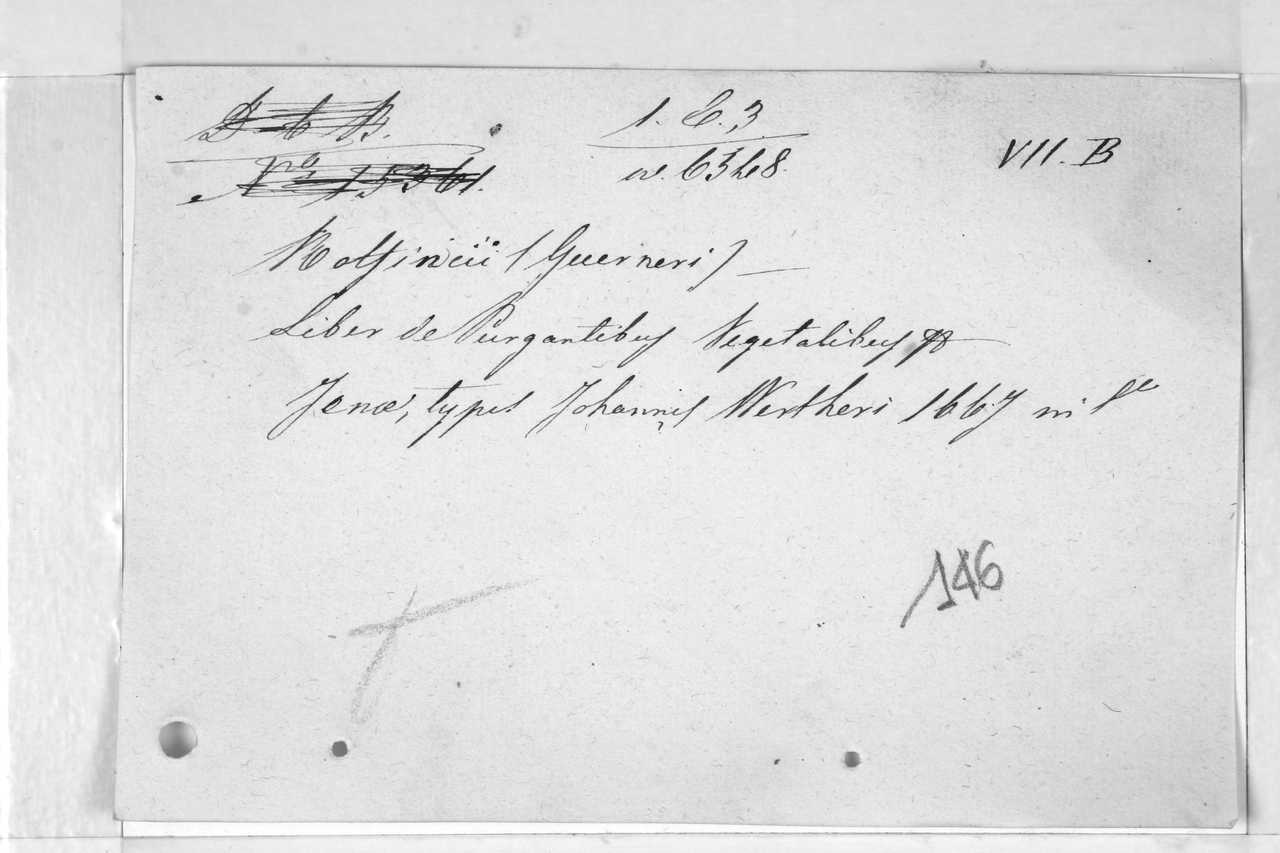 D b B.
No 15361.
1. E. 3
VII. B
Rolfincii (Guerneri) —
Liber de Purgantibus Vegetalibus
Jenæ, typis Johannis Wertheri 1667 in
146